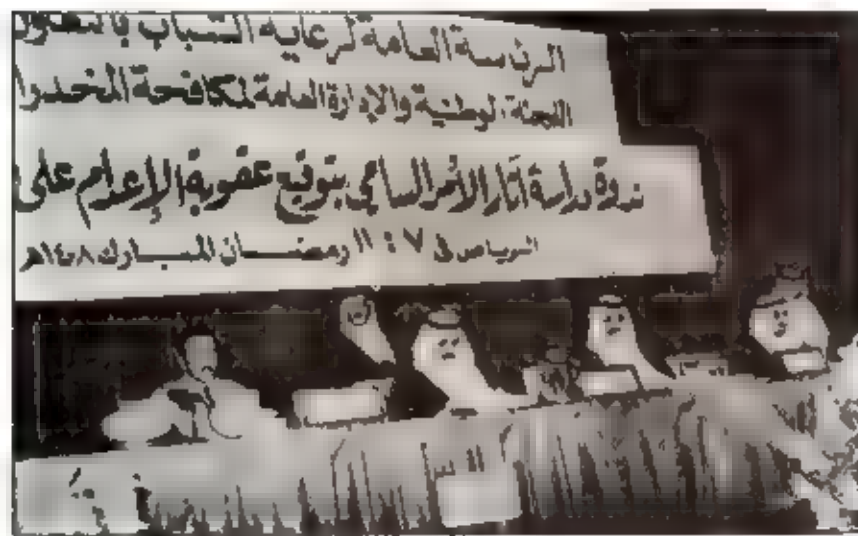 الرئاسة العامة لرعاية الشباب بالتعاون
اللجنة الوطنية والإدارة العامة لمكافحة المخدرا
ندوة دراسة آثار الأمر السامي بتوقيع عقوبة الإعدام على
الرياض في ٧ : ١١ رمضان المبارك ١٤٠٨هـ